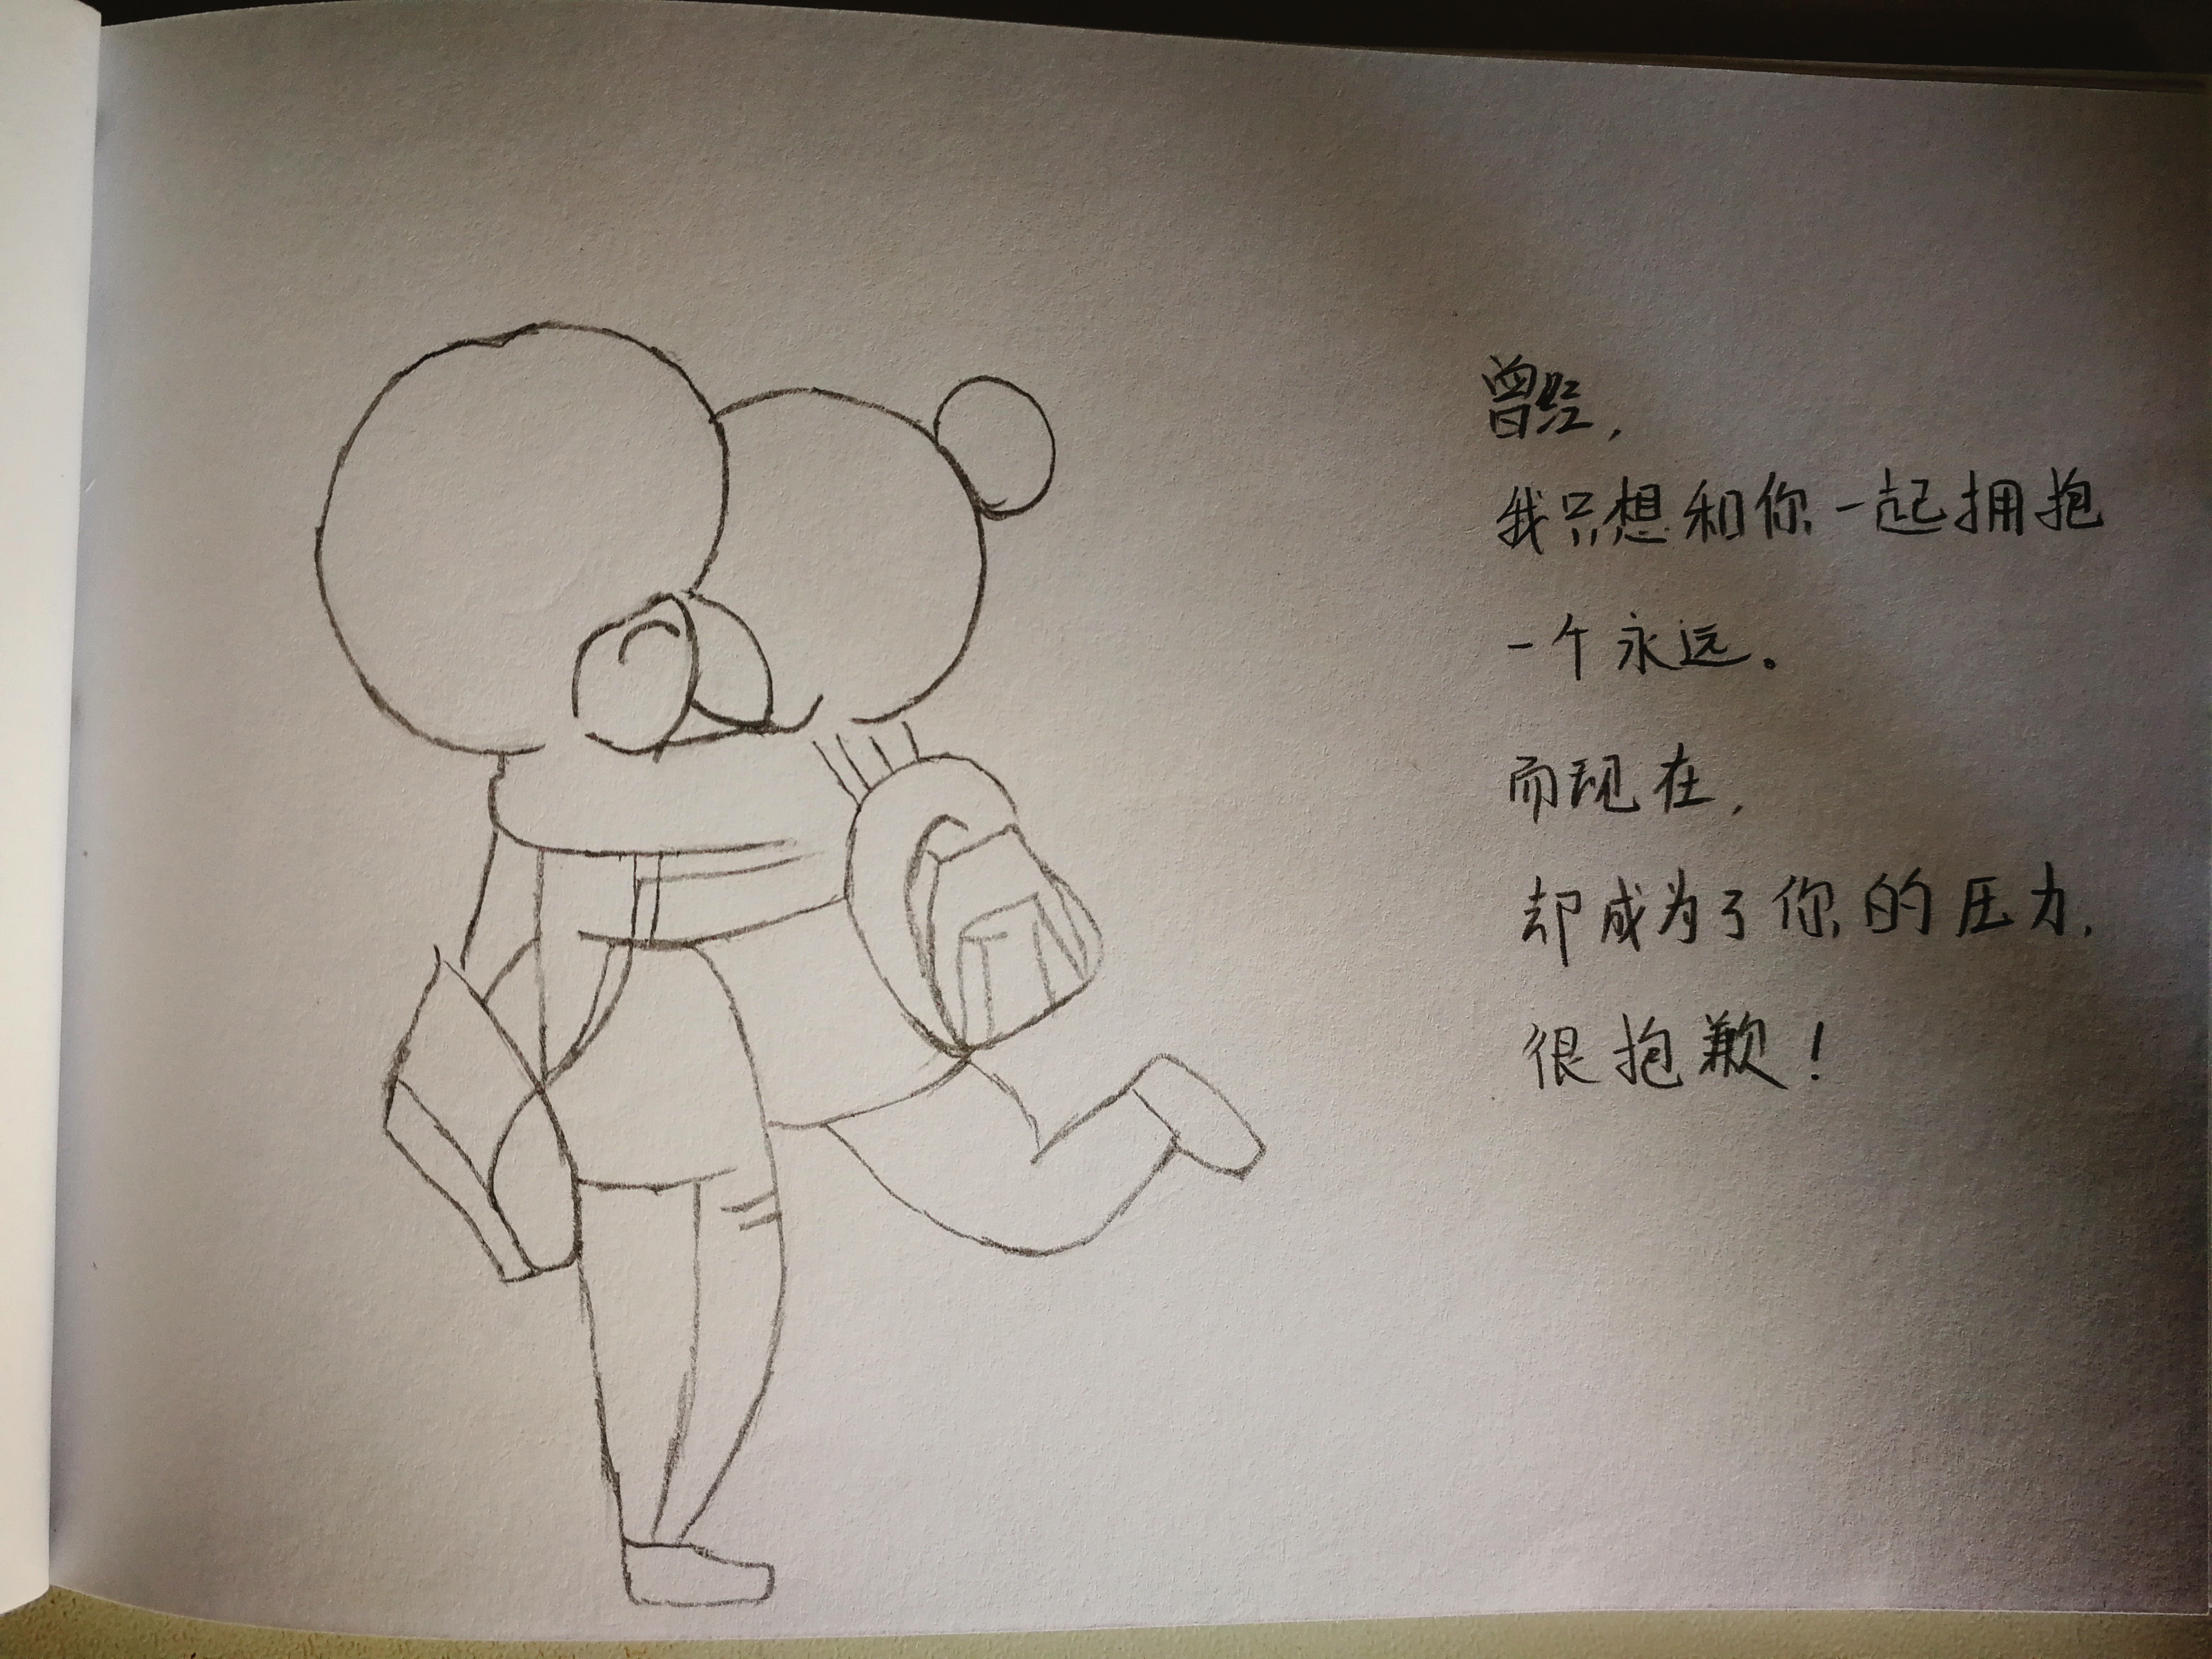 曾经，
我只想和你一起拥抱
一个永远。
而现在，
却成为了你的压力，
很抱歉！